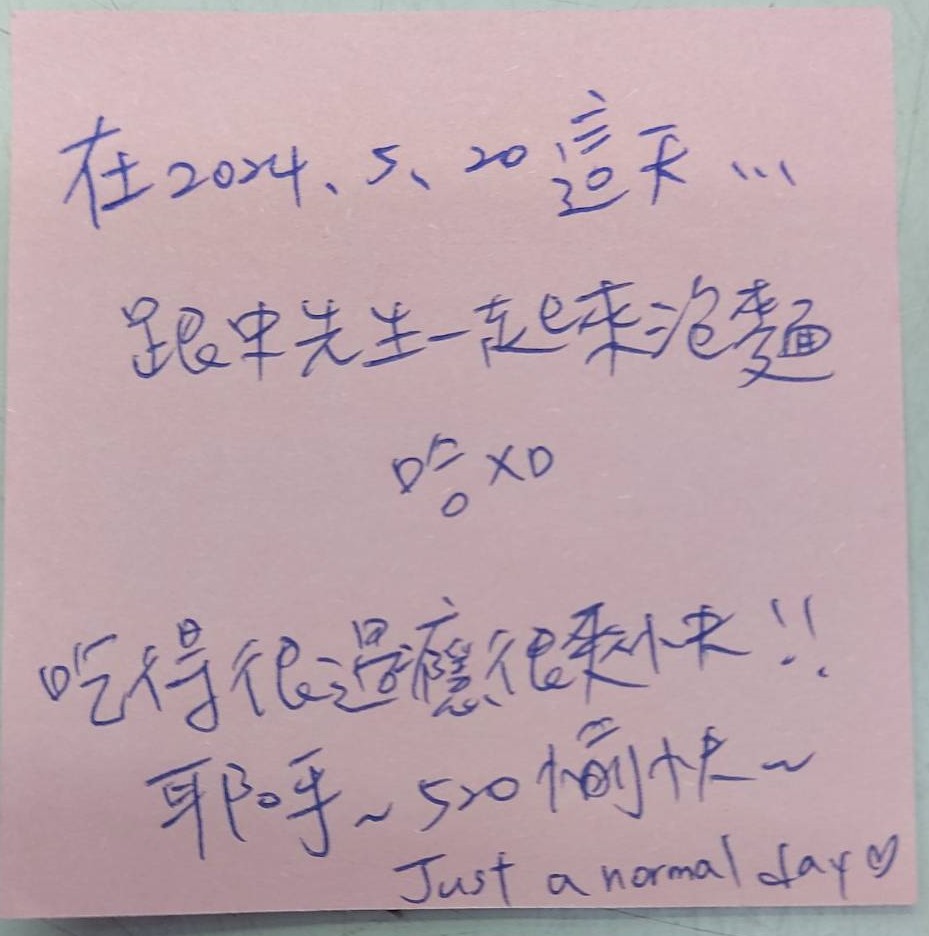 在2024、5、20這天...
跟中先生一起來泡麵
哈XD
吃得很過癮很爽快!!
耶呼~520愉快~
Just a normal day♡